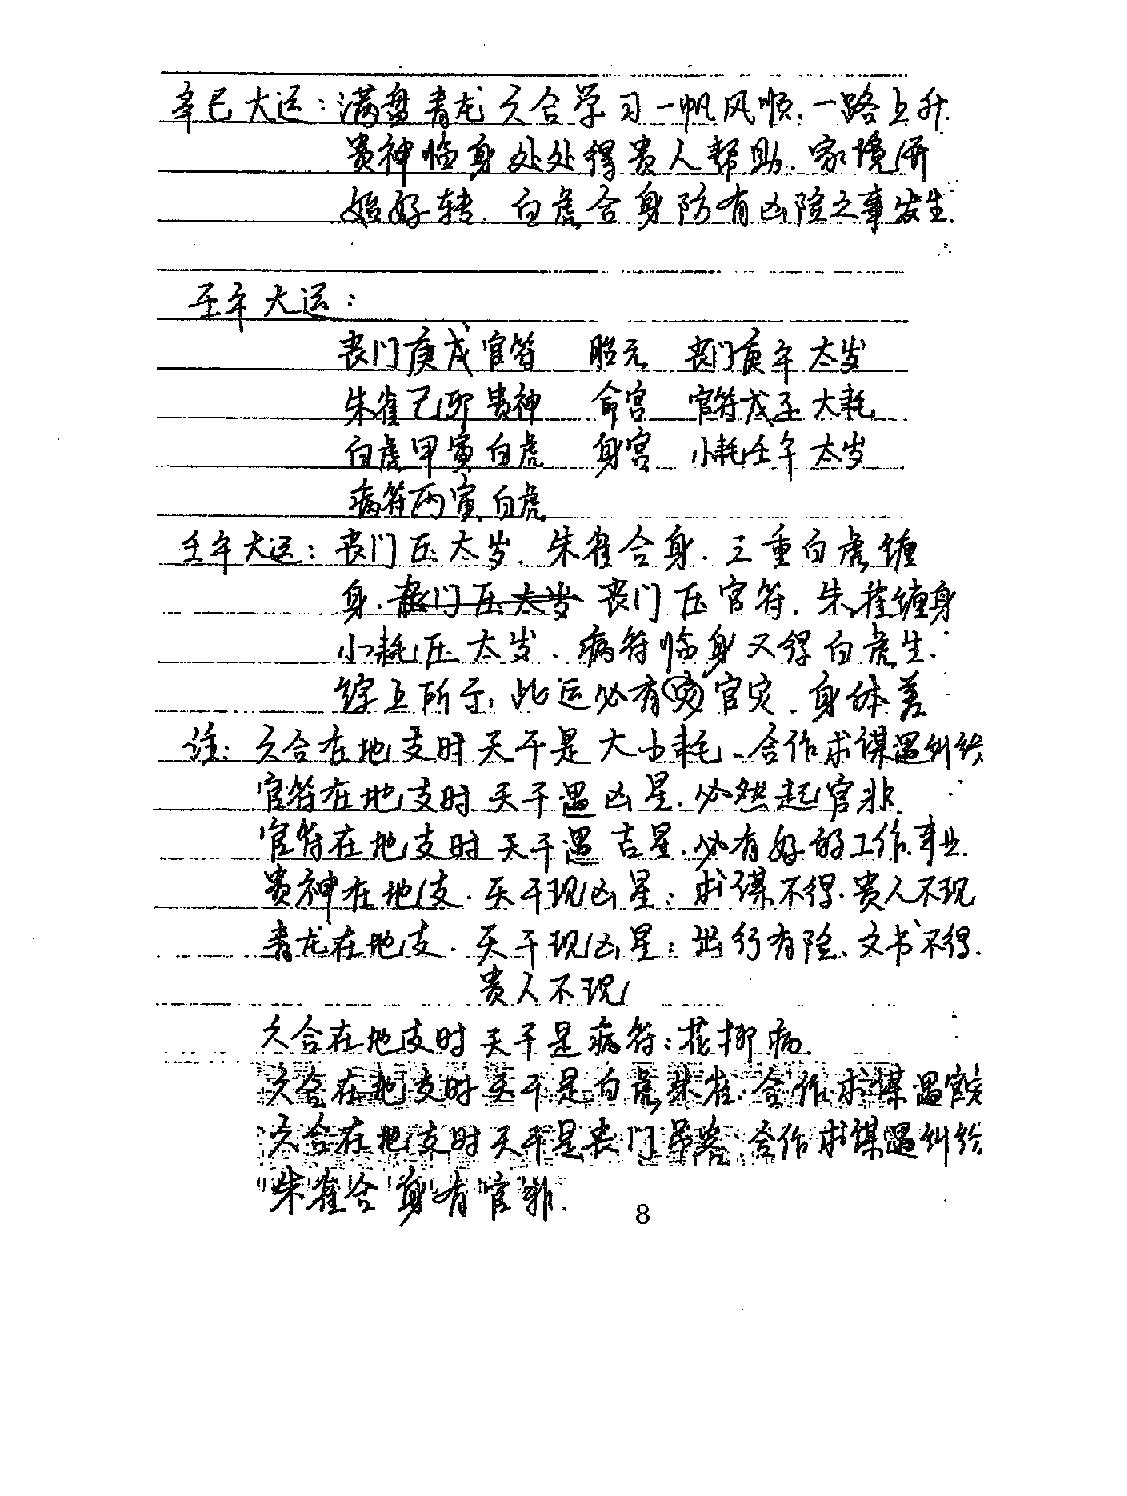 辛巳大运：满盘青龙六合学习一帆风顺.一路上升.
贵神临身处处得贵人帮助.家境渐
始好转.白虎合身防有凶险之事发生.
壬午大运：
丧门庚戌官符 胎元 丧门庚午太岁
朱雀己卯贵神 命宫 官符戊子大耗
白虎甲寅白虎 身宫 小耗壬午太岁
病符丙寅白虎
壬午大运：丧门压太岁.朱雀合身.三重白虎缠
身.丧门压太岁 丧门压官符.朱雀缠身
小耗压太岁.病符临身又得白虎生.
综上所于,此运必有官灾.身体差
注：六合在地支时天干是大小耗.合作求谋遇纠纷
官符在地支时天干遇凶星.必然起官非.
官符在地支时天干遇吉星.必有好的工作.事业.
贵神在地支.天干现凶星：求谋不得.贵人不现
青龙在地支.天干现凶星：出行有险.文书不得.
贵人不现
六合在地支时天干是病符：花柳病.
六合在地支时天干是白虎朱雀:合作求谋遇官灾
六合在地支时天干是丧门吊客:合作求谋遇纠纷
朱雀合身有官非.
8